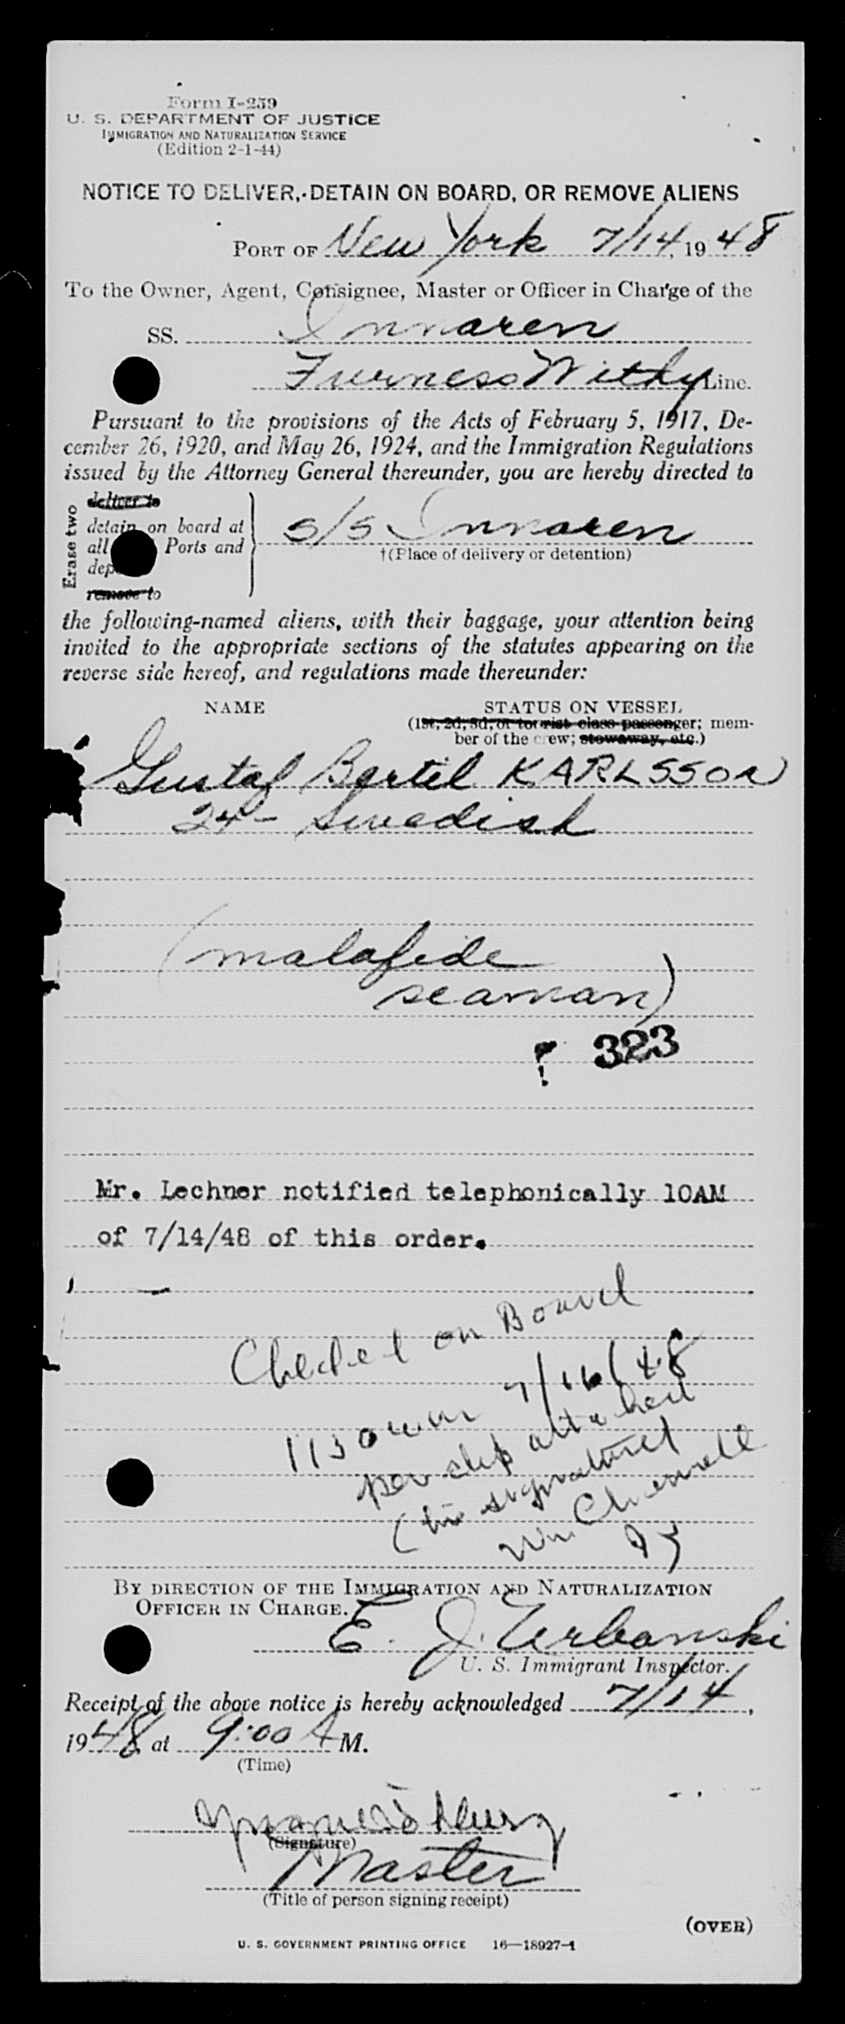 Form I-259
U. S. DEPARTMENT OF JUSTICE
IMMIGRATION AND NATURALIZATION SERVICE
(Edition 2-1-44)
NOTICE TO DELIVER, DETAIN ON BOARD, OR REMOVE ALIENS
PORT OF New York 7/14, 1948
To the Owner, Agent, Consignee, Master or Officer in Charge of the
SS. Innaren
Furness Withy Line.
Pursuant to the provisions of the Acts of February 5, 1917, De-
cember 26, 1920, and May 26, 1924, and the Immigration Regulations
issued by the Attorney General thereunder, you are hereby directed to
Erase two
deliver to
detain on board at
all Ports and
dep
remove to
s/s Innaren
†(Place of delivery or detention)
the following-named aliens, with their baggage, your attention being
invited to the appropriate sections of the statutes appearing on the
reverse side hereof, and regulations made thereunder:
NAME STATUS ON VESSEL
(1st, 2d, 3d, or tourist class passenger; mem-
ber of the crew; stowaway, etc.)
Gustaf Bertil KARLSSON
24 - Swedish
(malafide
seaman)
323
Mr. Lechner notified telephonically 10AM
of 7/14/48 of this order.
Checked on Board
1130 am 7/16/48
per slip attached
(his signature)
Wm
BY DIRECTION OF THE IMMIGRATION AND NATURALIZATION
OFFICER IN CHARGE.
E. J. Urbanski
U. S. Immigrant Inspector.
Receipt of the above notice is hereby acknowledged 7/14,
1948 at 9:00 A M.
(Time)
(Signature)
Master
(Title of person signing receipt)
(OVER)
U. S. GOVERNMENT PRINTING OFFICE 16—18927-1